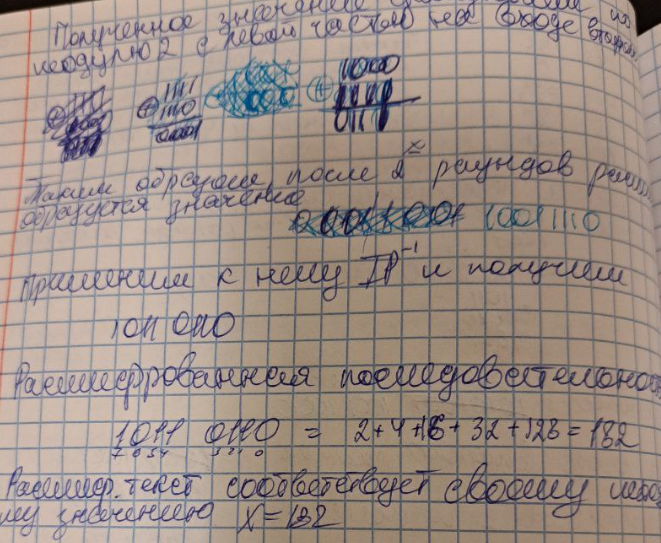 Полученное значение
модулю 2 с левой частью на входе второго
⊕ 1111 ⊕ 1000
1110 1111
0001 0111
Таким образом после 2х раундов
образуется значение
10011110
Применим к нему IP⁻¹ и получим
1011 0110
Расшифрованная последовательнос
1011 0110 = 2+4+16+32+128=182
7 6 5 4 3 2 1 0
Расшифр. текст соответствует своему исход
му значению X=182